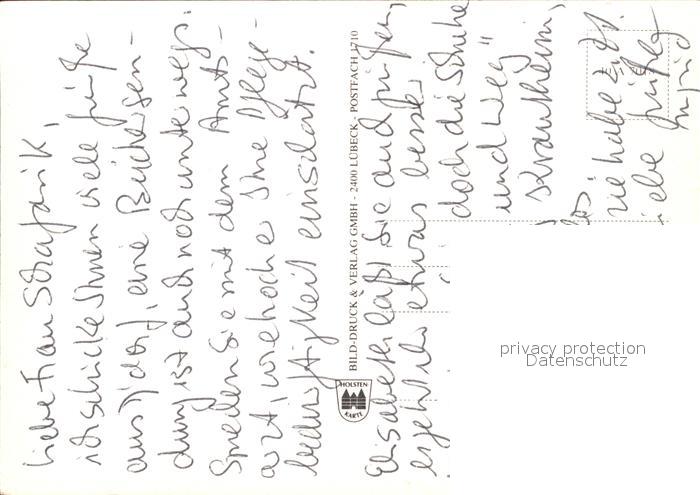 Liebe Frau Schafarik,
ich schicke Ihnen viele Grüße
aus J'dorf, eine Büchersen-
dung ist auch noch unterwegs.
Sprechen Sie mit dem Amts-
arzt, wie hoch er Ihre Pflege-
bedürftigkeit einschätzt.
BILD-DRUCK & VERLAG GMBH - 2400 LÜBECK - POSTFACH 1710
HOLSTEN
KARTE
Elisabeth läßt Sie auch grüßen,
es geht ihr etwas besser
doch die Schuhe
und weg"
Krautheim,
Sie habe
liebe Grüße
Ingrid
privacy protection
Datenschutz